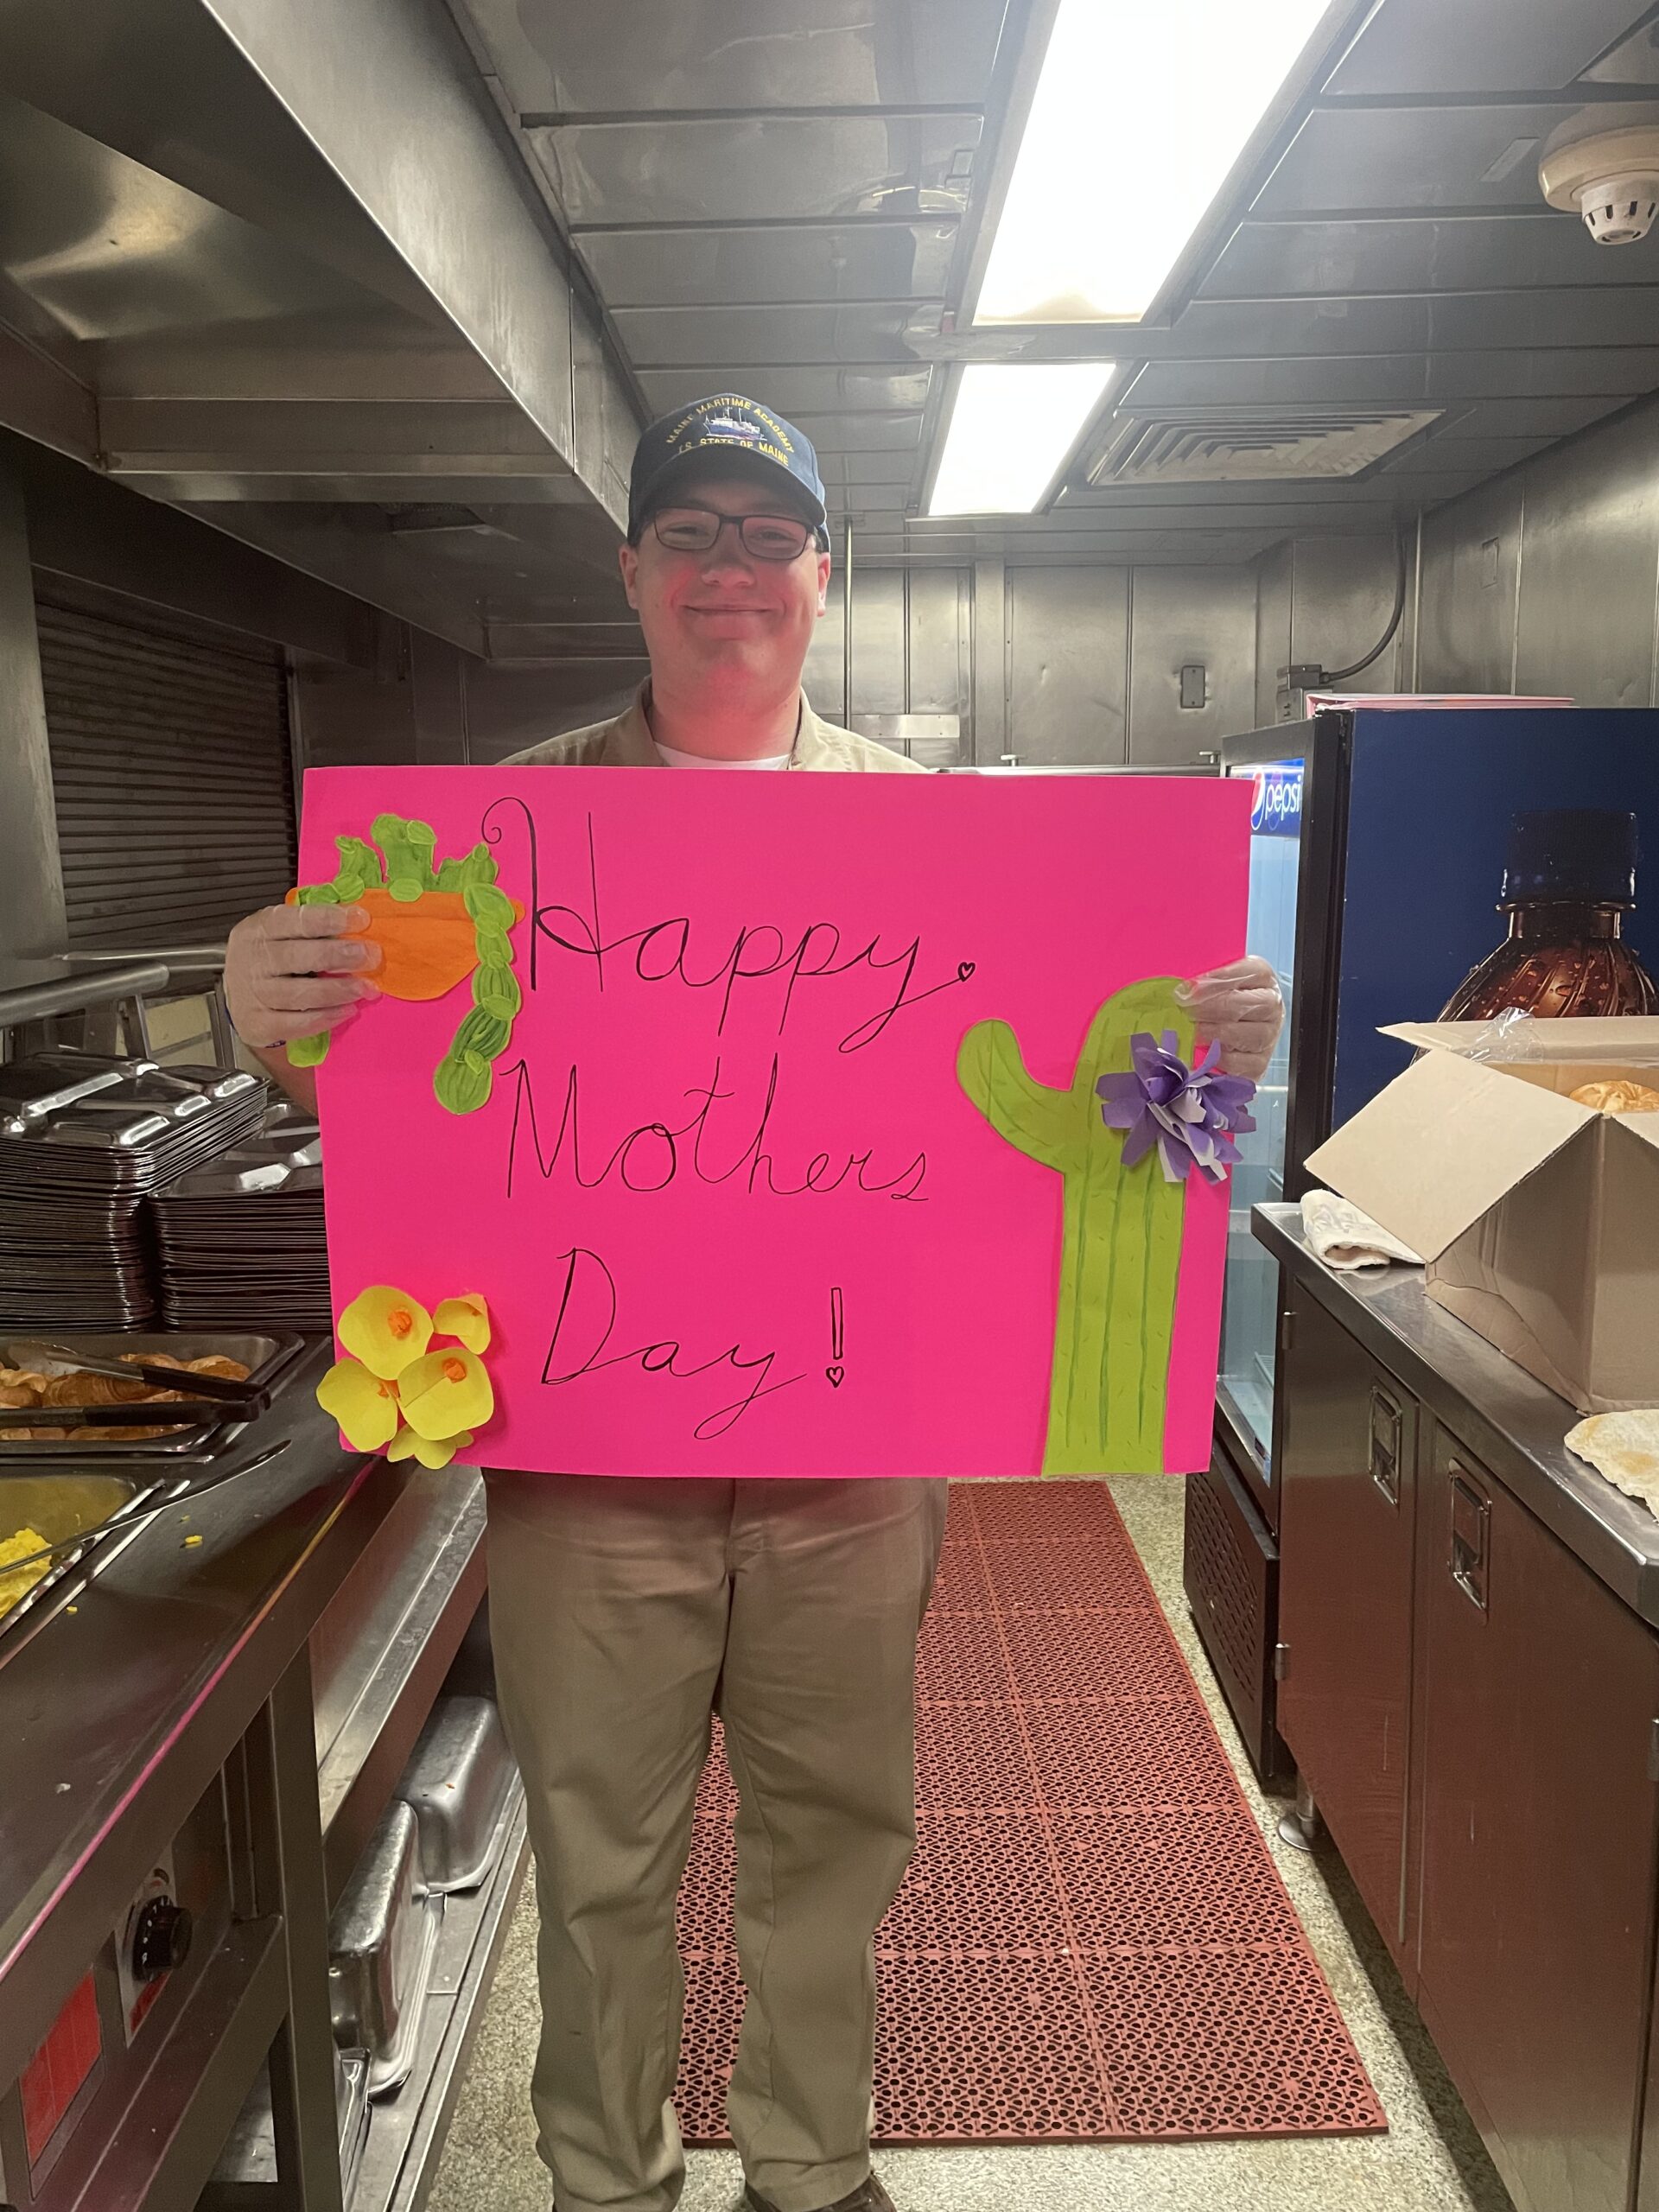 MAINE MARITIME ACADEMY
T.S. STATE OF MAINE
Happy
Mothers
Day!
pepsi